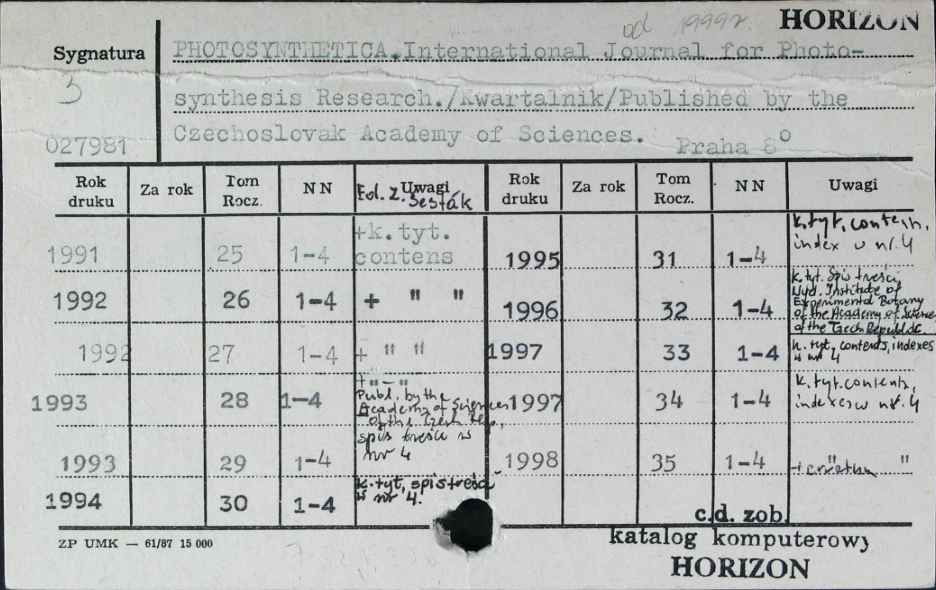 od 1999r. HORIZON
Sygnatura PHOTOSYNTHETICA.International Journal for Photo-
3 synthesis Research./Kwartalnik/Published by the
027981 Czechoslovak Academy of Sciences. Praha 8°
Rok druku Za rok Tom Rocz. NN Uwagi Rok druku Za rok Tom Rocz. NN Uwagi
Ed. Z. Šesták
1991 25 1-4 +k.tyt. contens 1995 31 1-4 k.tyt, contents, index w nr. 4
1992 26 1-4 + " " 1996 32 1-4 k.tyt. Spis treści Wyd. Institute of Experimental Botany of the Academy of Science of the Czech Republic
1992 27 1-4 + " " 1997 33 1-4 k. tyt, contents, indexes w nr 4
1993 28 1-4 + "-" Publ. by the Academy of Sciences of the Czech Rep., spis treści w nr 4 1997 34 1-4 k.tyt. contents, indexes w nr. 4
1993 29 1-4 1998 35 1-4 " "
1994 30 1-4 k.tyt, spis treści w nr 4.
c.d. zob.
ZP UMK — 61/87 15 000 katalog komputerowy
HORIZON